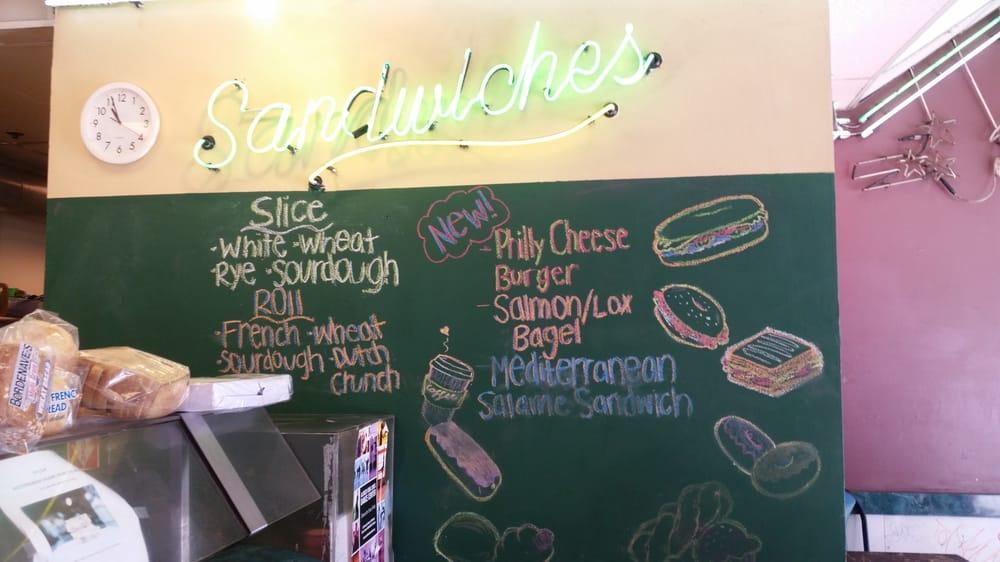 Sandwiches
12
11
10
9
8
7
6
5
4
Slice
·White ·wheat
·Rye ·sourdough
Roll
·French ·wheat
sourdough ·Dutch
crunch
NEW!
-Philly Cheese
Burger
-Salmon/Lox
Bagel
-Mediterranean
Salame Sandwich
coffee
BORDENAVE'S
FRENCH
READ